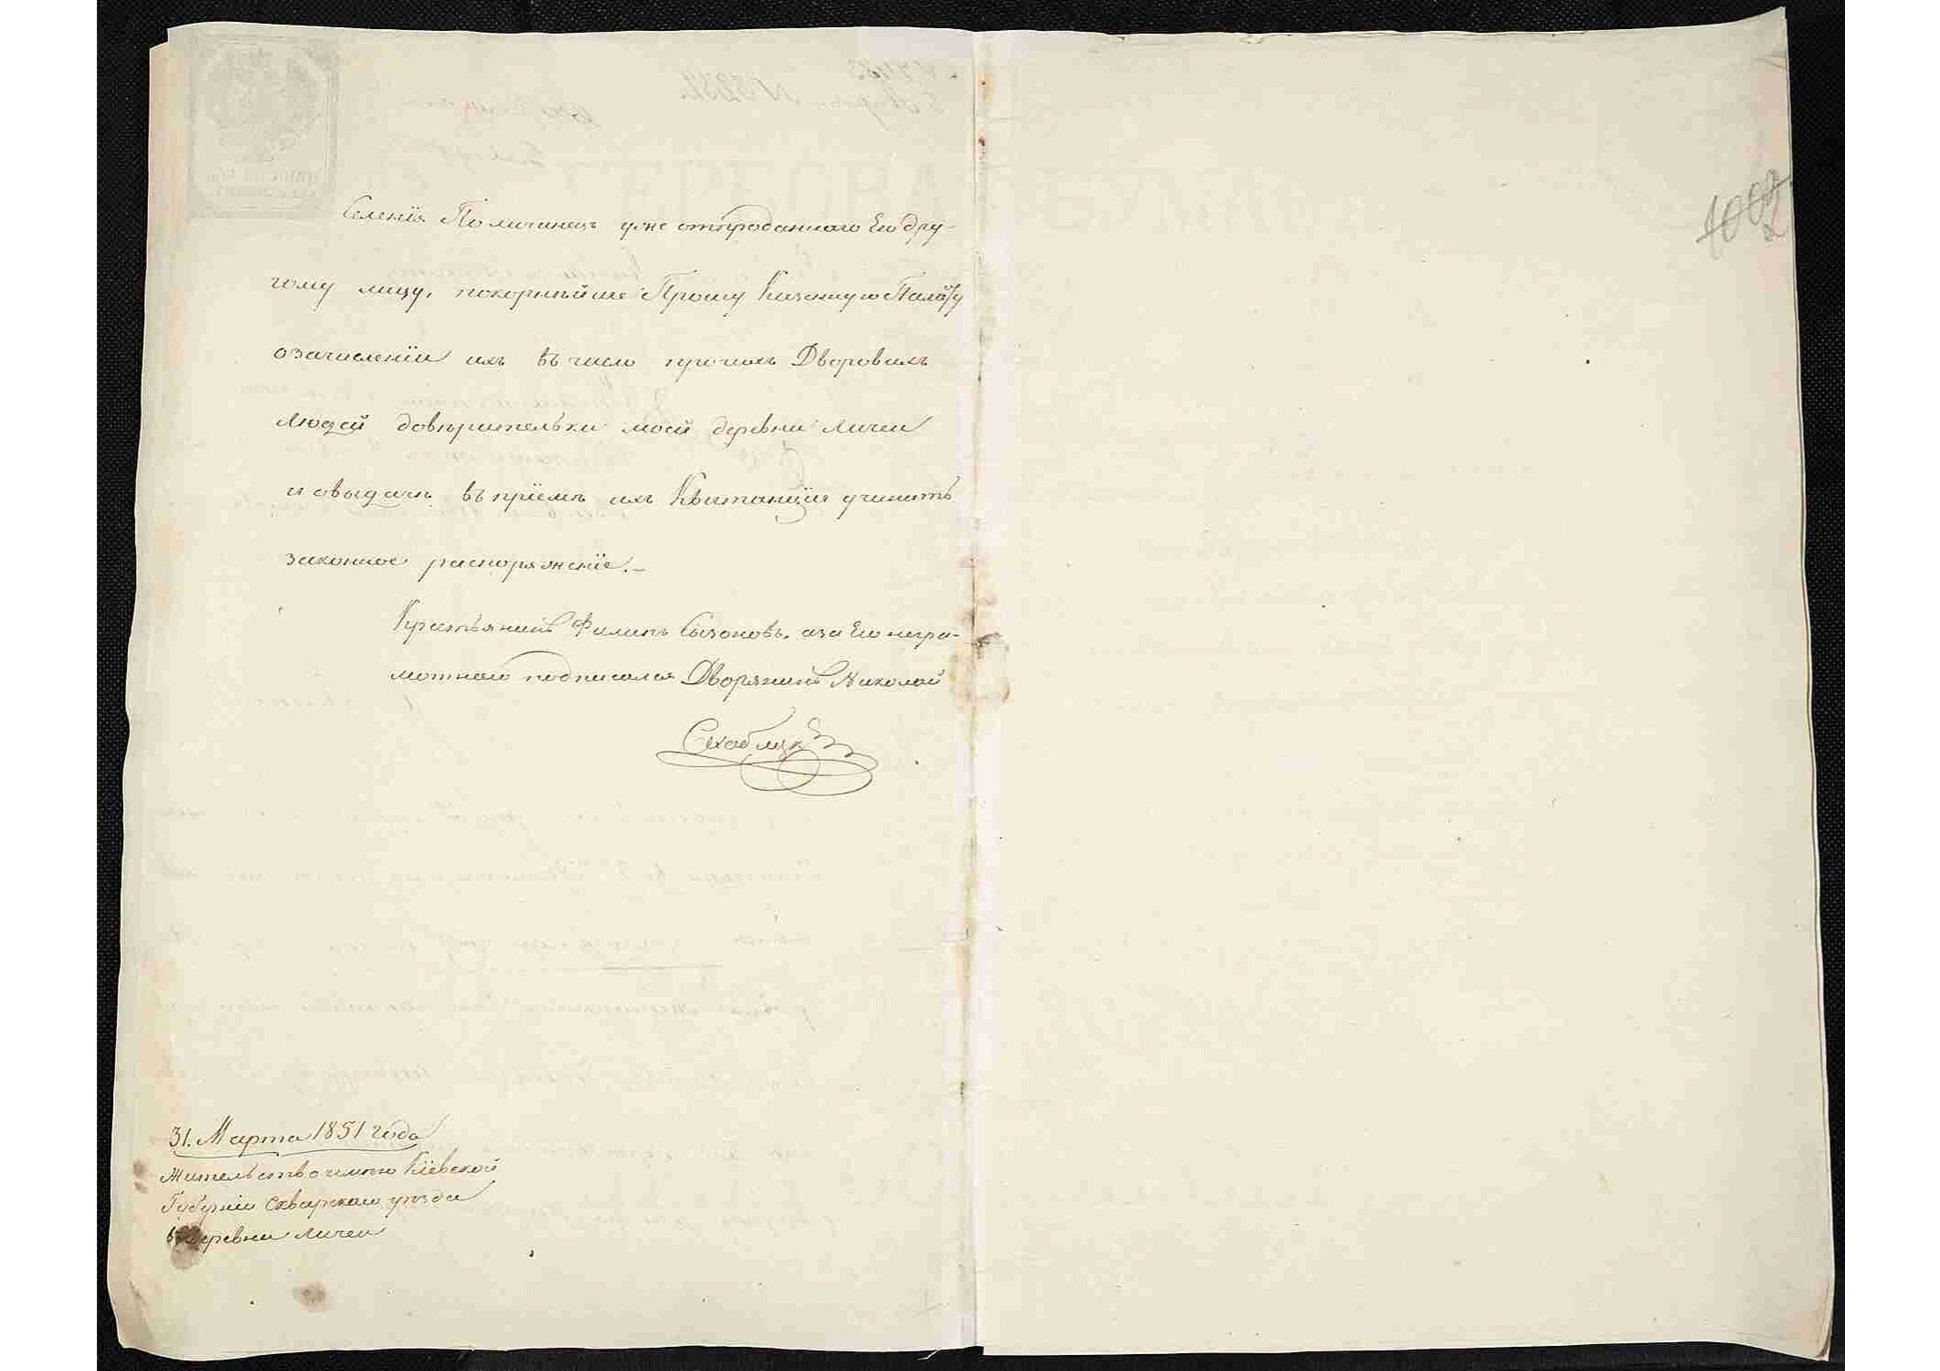 селенія Поличинец уже отпроданного Его дру-
гому лицу, покорнѣйше Прошу Казенную Палату
озачисленіи ихъ въ число прочихъ Дворовыхъ
людей довѣрительки моей деревни Личеи
и овыдачи въ пріемѣ ихъ Квитанціи учинить
законное распоряженіе.
Крестьянинъ Филипъ Сызоновъ, аза Его негра-
мотного подписался Дворянинъ Николай
31. Марта 1851 года
Жительство имѣю Кіевской
Губерніи Сквирскаго уезда
в деревни Личеи